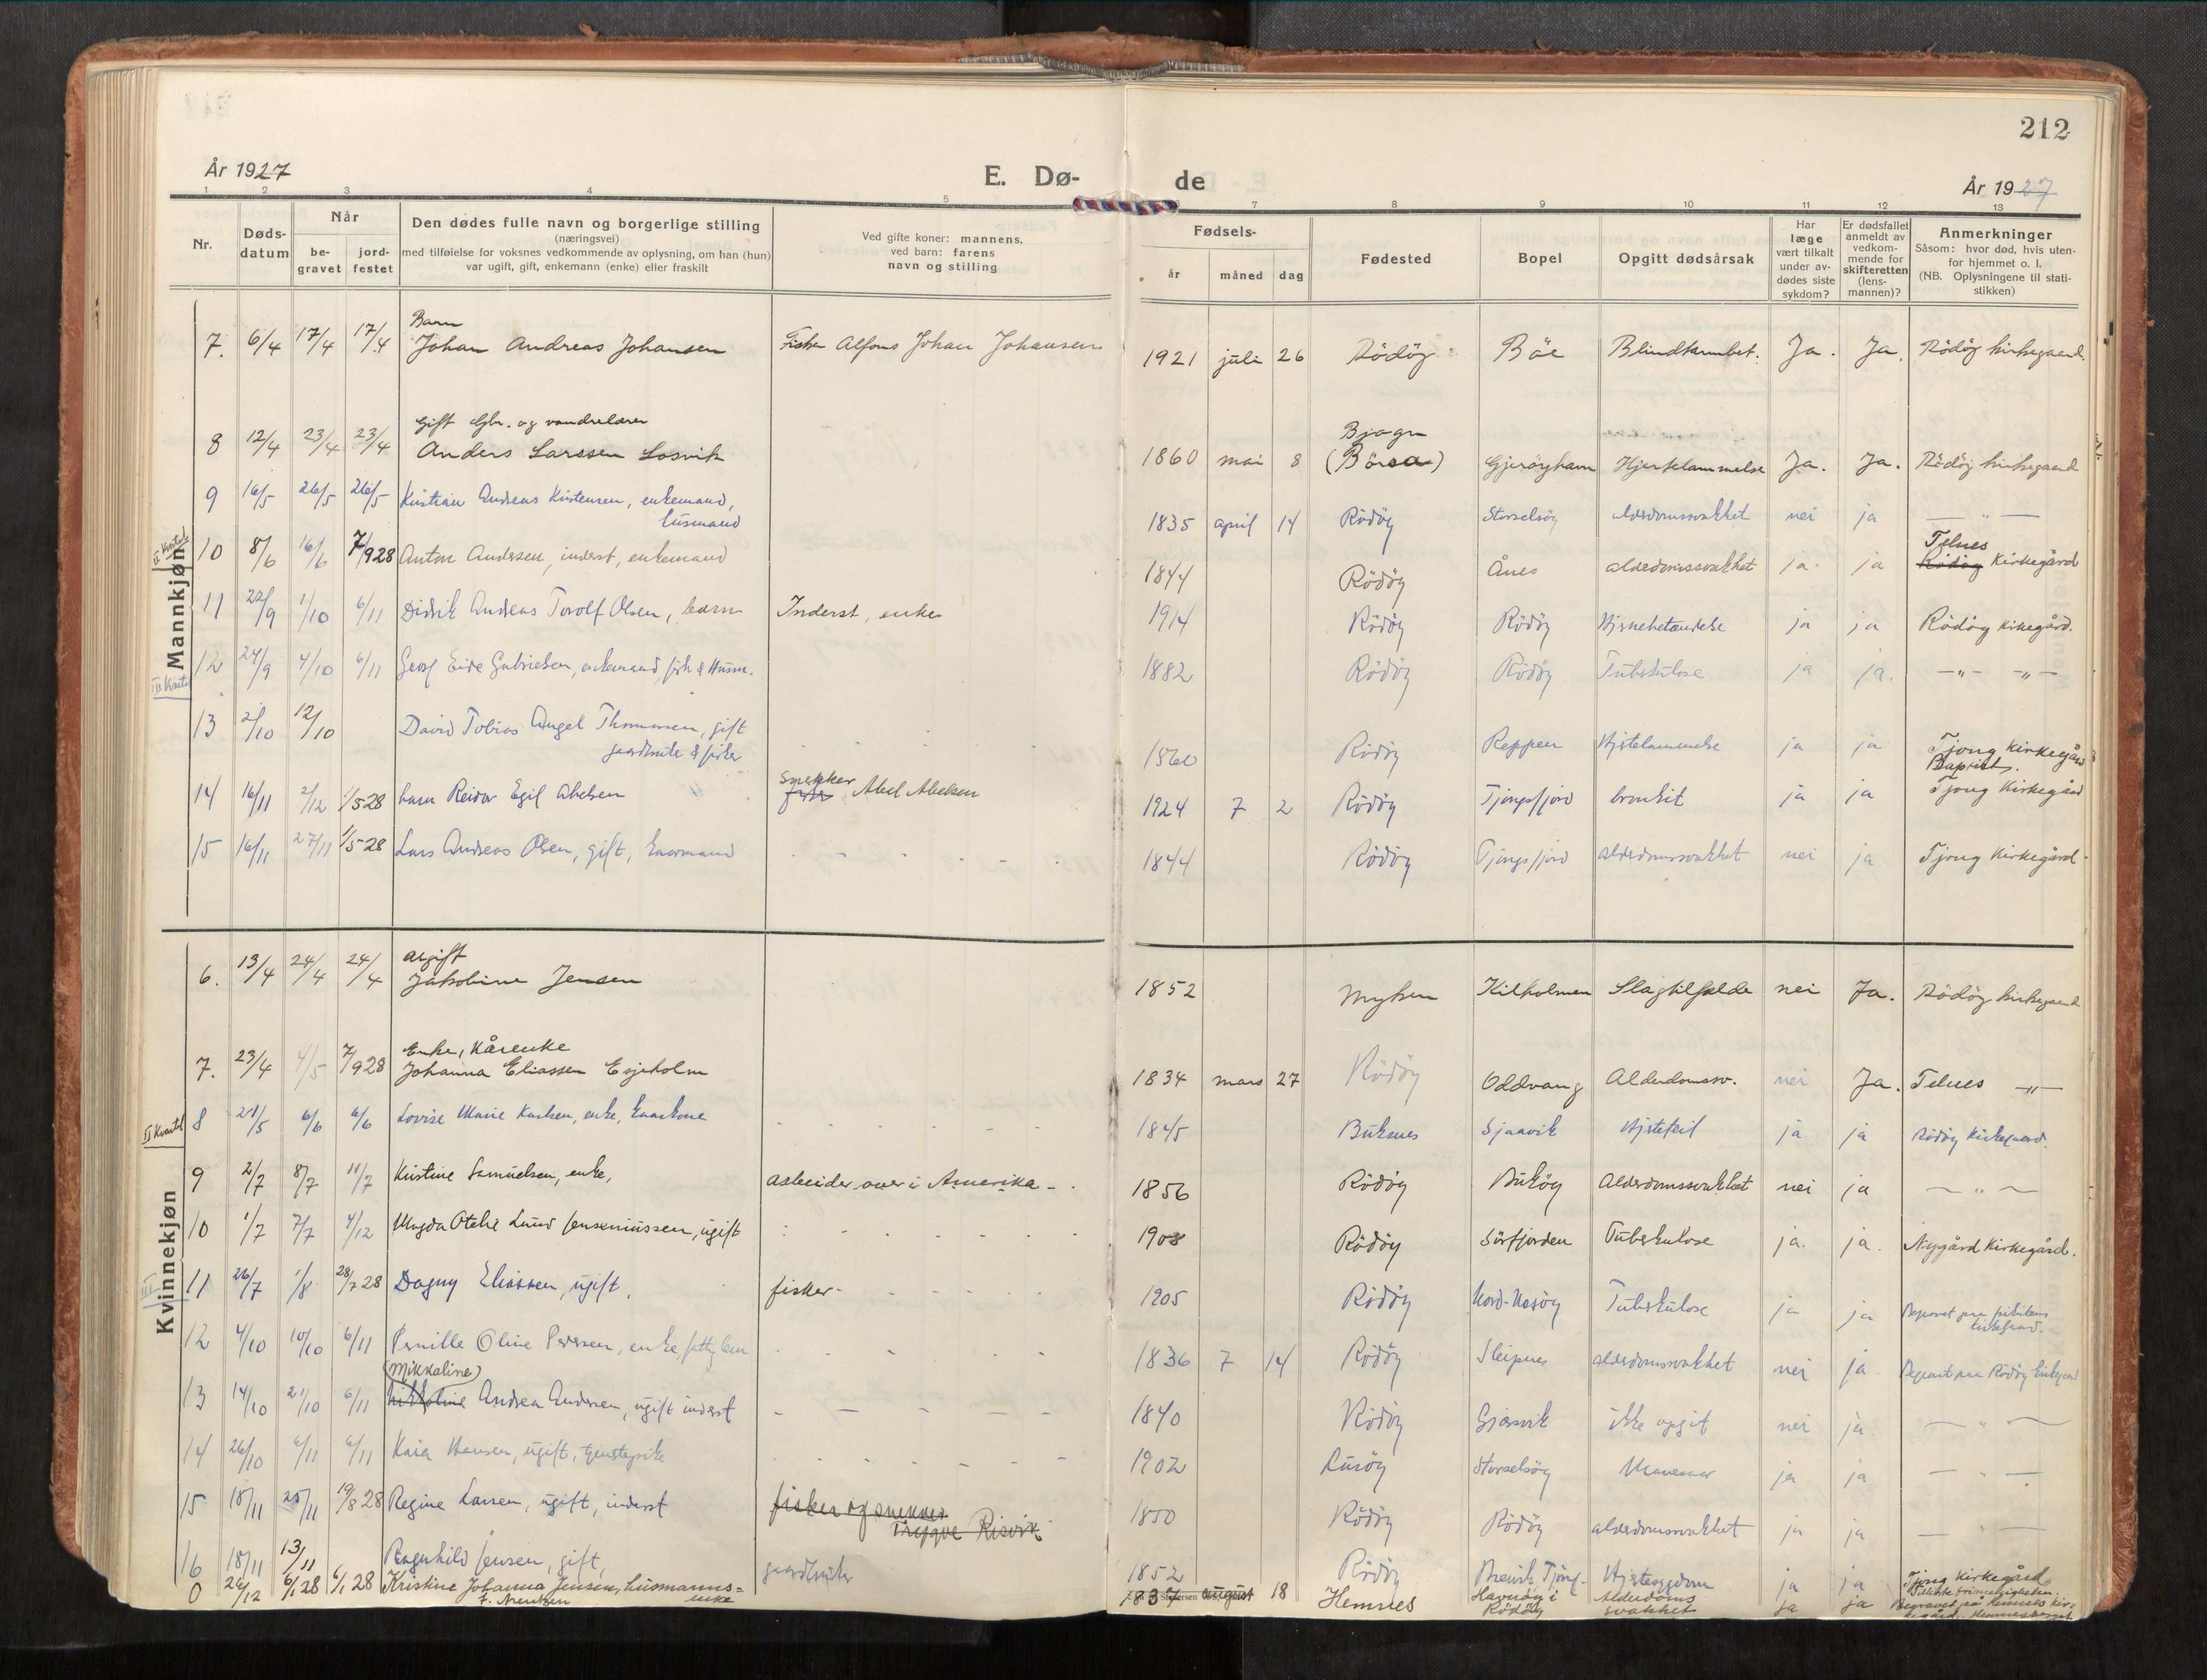 212
År 1927
E. Dø-
de
År 1927
1 2 3 4 5 6 7 8 9 10 11 12 13
Nr.
Døds-
datum
Når
be-
gravet
jord-
festet
Den dødes fulle navn og borgerlige stilling
(næringsvei)
med tilføielse for voksnes vedkommende av oplysning, om han (hun)
var ugift, gift, enkemann (enke) eller fraskilt
Ved gifte koner: mannens,
ved barn: farens
navn og stilling
Fødsels-
år måned dag
Fødested
Bopel
Opgitt dødsårsak
Har
læge
vært tilkalt
under av-
dødes siste
sykdom?
Er dødsfallet
anmeldt av
vedkom-
mende for
skifteretten
(lens-
mannen)?
Anmerkninger
Såsom: hvor død, hvis uten-
for hjemmet o. l.
(NB. Oplysningene til stati-
stikken)
Mannkjøn
Barn
7. 6/4 17/4 17/4 Johan Andreas Johansen Fisker Alfons Johan Johansen 1921 juli 26 Rödöy Böe Blindtarmbet. Ja. Ja. Rödöy kirkegaard
Gift Gbr. og vandrelærer Bjogn
8 12/4 23/4 23/4 Anders Larssen Losvik 1860 mai 8 (Börsa) Gjeröyhavn Hjerteslammelse Ja. Ja. Rödöy kirkegaard
9 16/5 26/5 26/5 Kristian Andreas Kristensen, enkemand, 1835 april 14 Rödöy Storselsöy Alderdomssvakhet nei ja — " —
husmand
II Kvartal
Telnes
10 8/6 16/6 7/9 28 Anton Andersen, inderst, enkemand 1844 Rödöy Ånes alderdomssvakhet ja ja Rödöy Kirkegård
11 22/9 1/10 6/11 Didrik Andreas Torolf Olsen, barn Inderst, enke 1914 Rödöy Rödöy Hjernebetændelse ja ja Rödöy kirkegård.
III Kvartal
12 24/9 4/10 6/11 Georg Eide Gabrielsen, enkemand, fisk. & Husm. 1882 Rödöy Rödöy Tuberkulose ja ja. —"— —"—
13 2/10 12/10 David Tobias Angel Thommesen, gift 1860 Rödöy Reppen Hjertelammelse ja ja Tjong Kirkegård
gaardbruker & fisker Baptist.
snekker
14 16/11 2/12 1/5 28 barn Reidar Egil Abelsen fisker Abel Abelsen 1924 7 2 Rödöy Tjongsfjord bronkit ja ja Tjong Kirkegård
15 16/11 27/11 1/5 28 Lars Andreas Olsen, gift, kaarmand 1844 Rödöy Tjongsfjord alderdomssvakhet nei ja Tjong Kirkegård
Kvinnekjøn
ugift
6. 13/4 24/4 24/4 Jakobine Jensen 1852 Myken Kilholmen Slagtilfælde nei Ja. Rödöy kirkegaard
Enke, Kårenke
7. 23/4 4/5 7/9 28 Johanna Eliassen Esjeholm 1834 mars 27 Rödöy Oddvang Alderdomssv. nei Ja. Telnes —"—
II Kvartal
8 21/5 6/6 6/6 Lovise Marie Karlsen, enke, kaarkone 1845 Buksnes Sjaavik Hjertefeil ja ja Rödöy Kirkegaard.
9 2/7 8/7 11/7 Kristine Samuelsen, enke, arbeider over i Amerika - 1856 Rödöy Buköy Alderdomssvakhet nei ja — " —
10 1/7 7/7 4/12 Magda Otelie Lund Jenseniussen, ugift 1908 Rödöy Sörfjorden Tuberkulose ja. ja. Nygård Kirkegård.
III
11 26/7 1/8 28/7 28 Dagny Eliassen, ugift, fisker 1905 Rödöy Nord-Nesöy Tuberkulose ja ja Begravet paa
12 4/10 10/10 6/11 Pernille Oline Pedersen, enke, fattiglem 1836 7 14 Rödöy Sleipnes alderdomssvakhet nei ja Begravet paa Rödöy Kirkegaard
(Mikkaline)
13 14/10 21/10 6/11 Andrea Andersen, ugift inderst 1840 Rödöy Gjersvik ikke opgit nei ja — " —
14 26/10 6/11 6/11 Kaia Hansen, ugift, tjenestepike 1902 Rusöy Storselsöy ja ja — " —
15 18/11 25/11 19/8 28 Regine Larsen, ugift, inderst fisker og snekker 1850 Rödöy Rödöy alderdomssvakhet ja ja — " —
Trygve Risvik
16 18/11 13/11 Ragnhild Jensen, gift, gaardbruker 1852 Rödöy Breivik Tjong. Hjertesygdom ja ja Tjong Kirkegård
0 26/12 6/1 28 6/1 28 Kristine Johanna Jensen, husmanns- 1837 august 18 Hemnes Havnöy i Alderdoms ja ja Begravet på Hemnes kir-
enke Rödöy svakhet